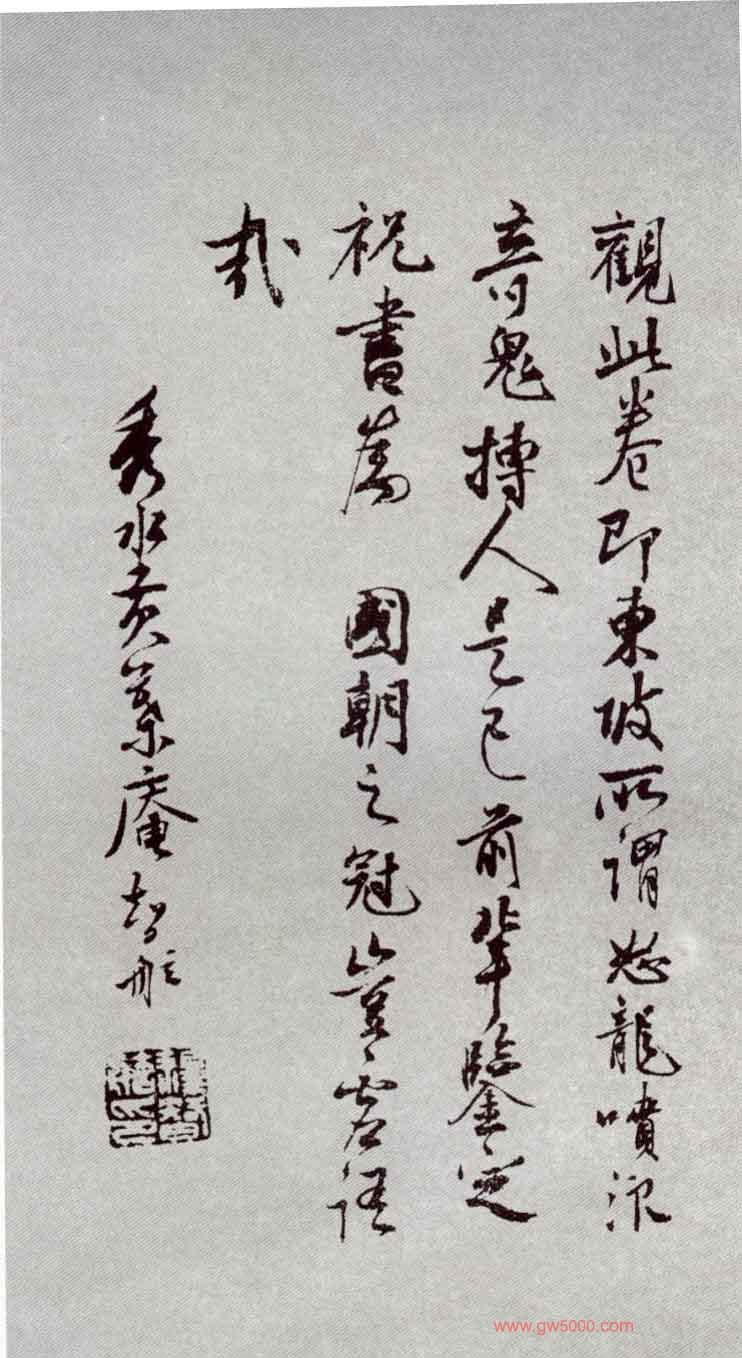 觀此卷即東坡所謂怒龍噴浪
奇鬼搏人是已前輩鑒定
祝書為 國朝之冠豈虛語
哉
秀水黃葉庵智舷
www.gw5000.com